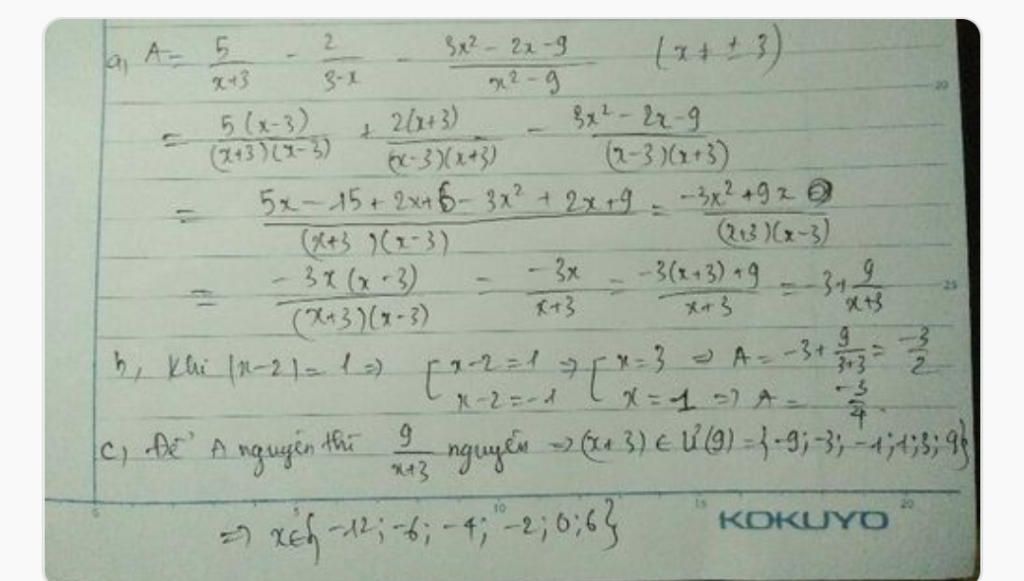 a, A = 5/(x+3) - 2/(3-x) - (3x² - 2x - 9)/(x² - 9) (x ≠ ± 3)
= 5(x-3)/((x+3)(x-3)) + 2(x+3)/((x-3)(x+3)) - (3x² - 2x - 9)/((x-3)(x+3))
20
= (5x - 15 + 2x + 6 - 3x² + 2x + 9)/((x+3)(x-3)) = (-3x² + 9x)/((x+3)(x-3))
= -3x(x-3)/((x+3)(x-3)) = -3x/(x+3) = (-3(x+3) + 9)/(x+3) = -3 + 9/(x+3)
25
b, Khi |x-2| = 1 => [ x-2 = 1 => [ x = 3 => A = -3 + 9/(3+3) = -3/2
x-2 = -1 x = 1 => A = -3/4.
c, Để A nguyên thì 9/(x+3) nguyên => (x+3) ∈ Ư(9) = {-9; -3; -1; 1; 3; 9}
5 10 15 20
=> x ∈ {-12; -6; -4; -2; 0; 6}
KOKUYO